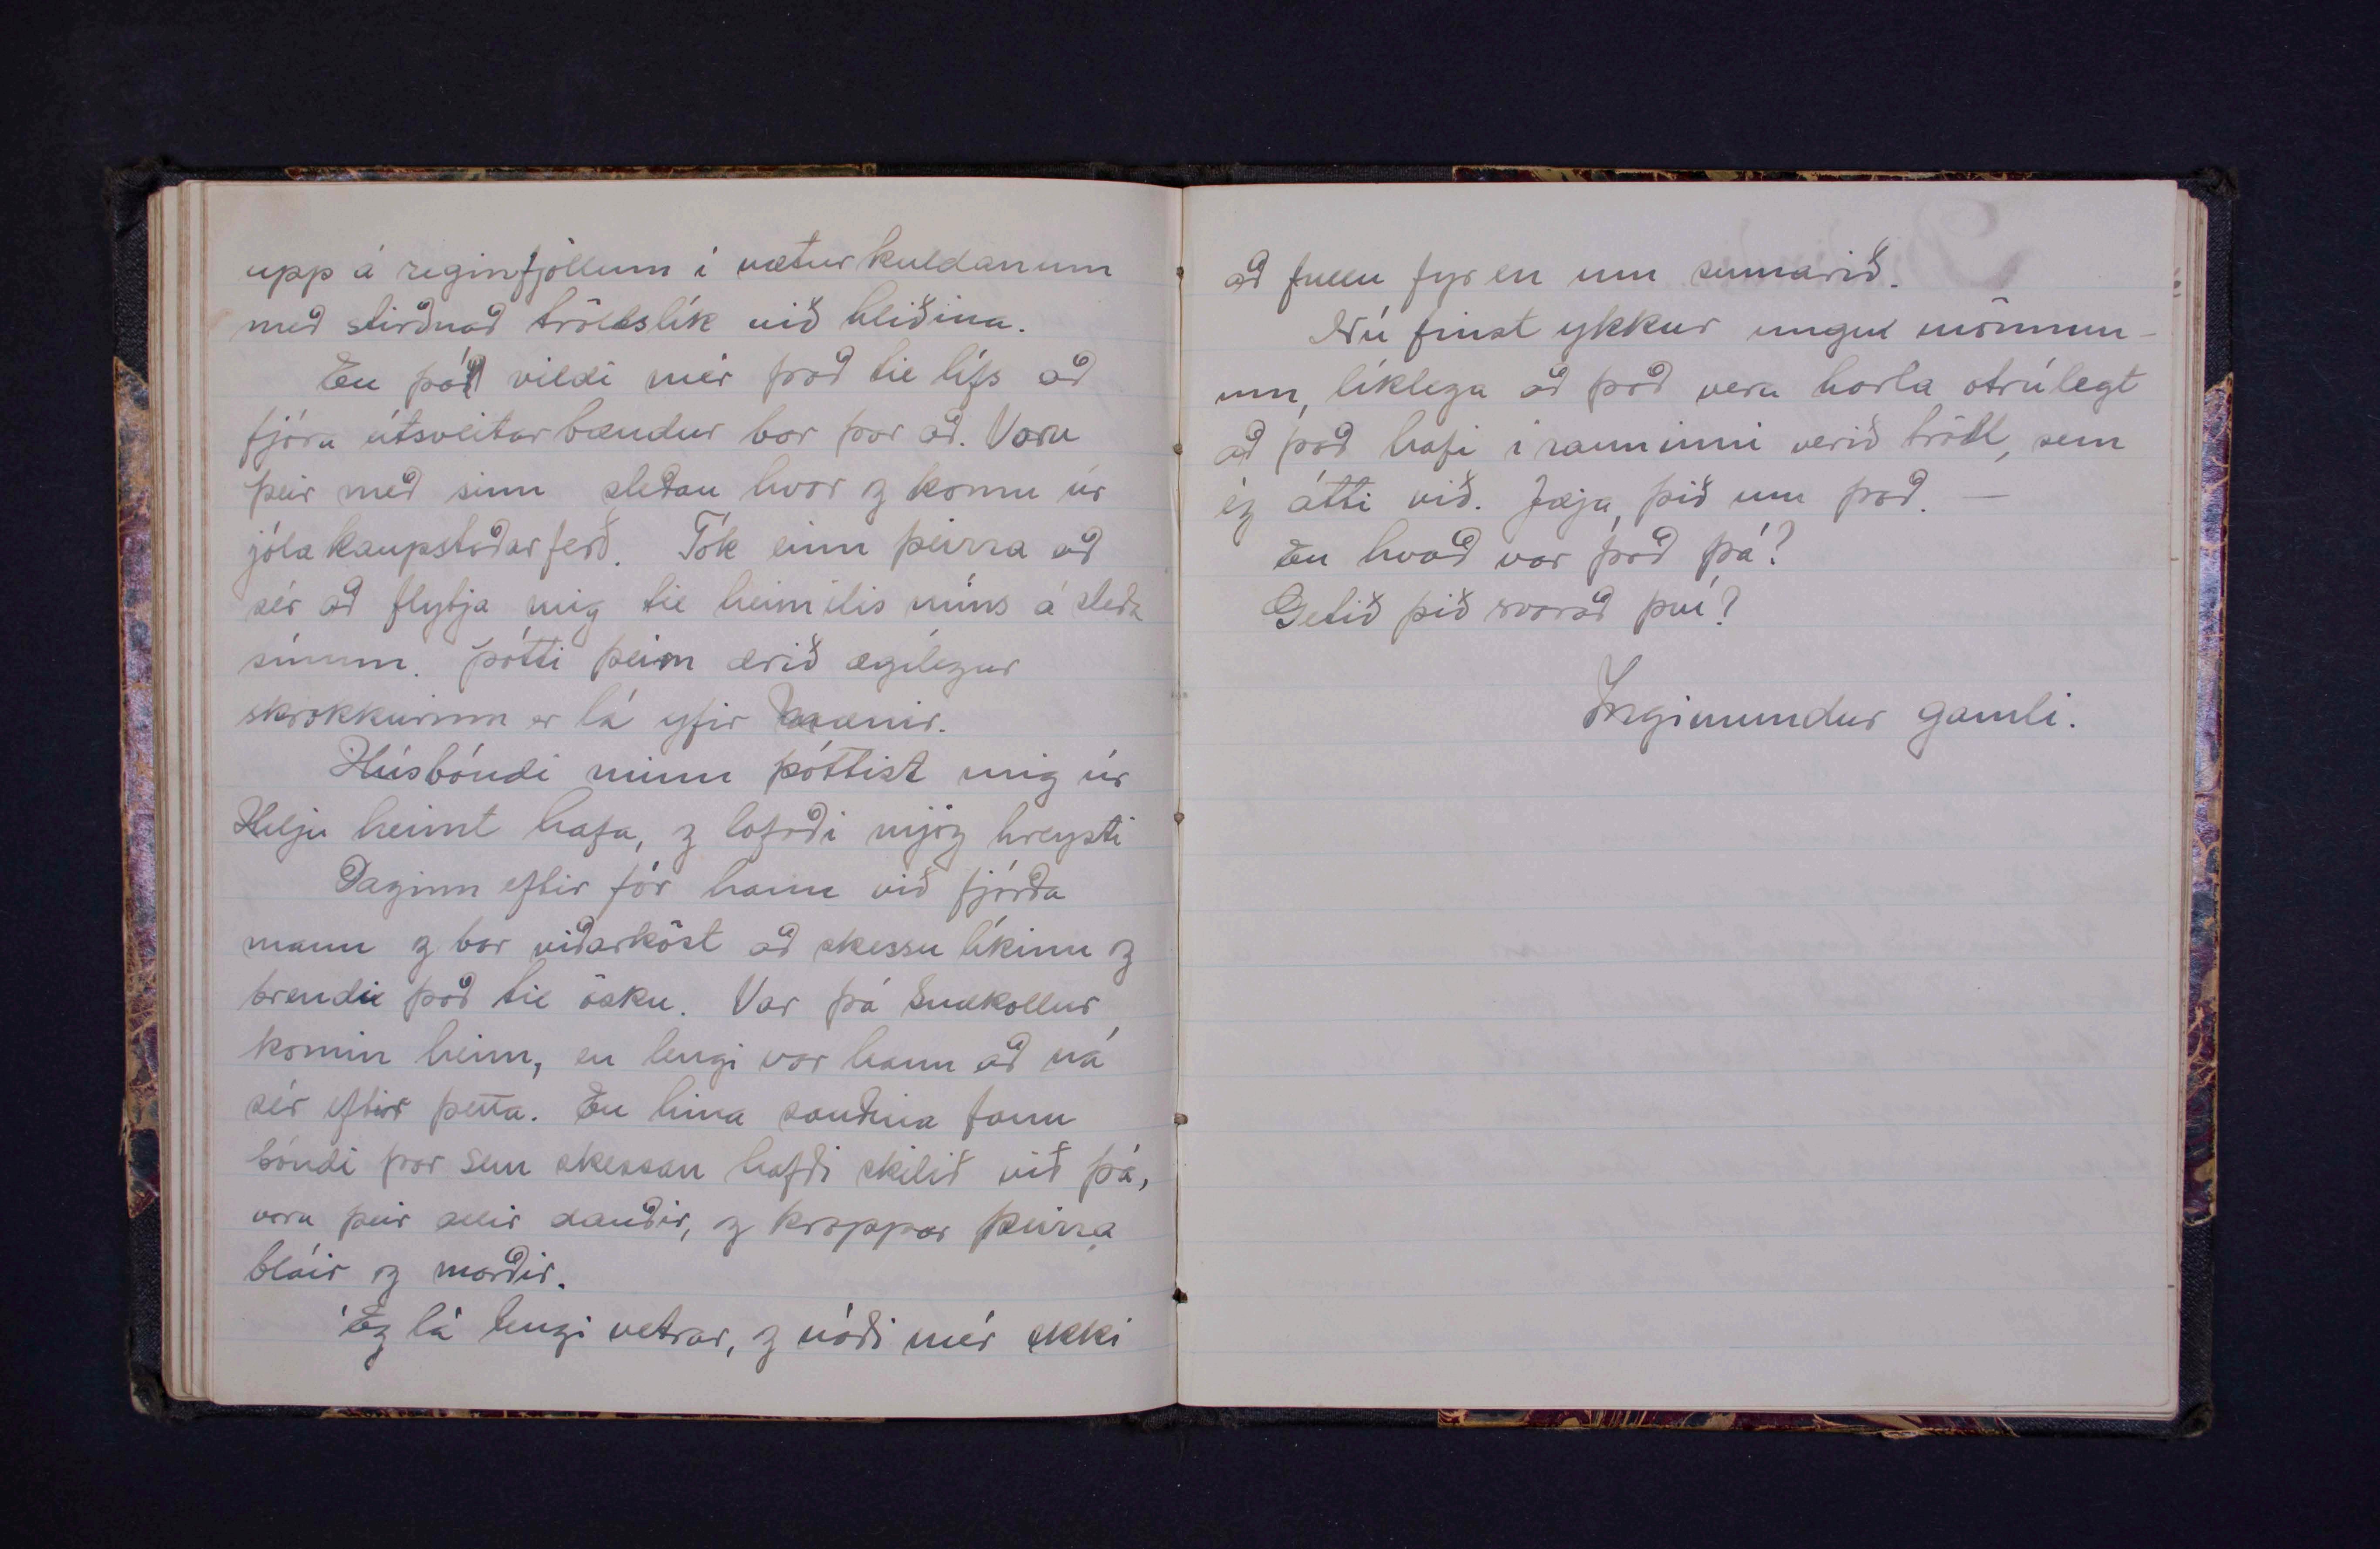 upp á reginfjöllum í vetur kuldanum
með stirðnað tröllslík við hliðina.
En þá vildi mér það til lífs að
fjóra útsveitarbændur bar þar að. Voru
þeir með sinn sleðan hvor og komu úr
jólakaupstaðarferð. Tók einn þeirra að
sér að flytja mig til heimilis míns á sleða
sínum. Þótti þeim ærið ægilegur
skrokkurinn er lá yfir
Húsbóndi minn þóttist mig úr
Helju heimt hafa, og lofaði mjög hreysti
Daginn eftir fór hann við fjórða
mann og bar viðarköst að skessu líkinu og
brendi það til ösku. Var þá Snækollur
komin heim, en lengi var hann að ná
sér eftir þetta. En hina sauðina fann
bóndi þar sem skessan hafði skilið við þá,
voru þeir allir dauðir, og kroppar þeirra
bláir og marðir.
Ég lá lengi vetrar, og náði mér ekki
að fullu fyr en um sumarið.
Nú finst ykkur ungu mönnun-
um, líklega að það vera harla ótrúlegt
að það hafi í rauninni verið tröll, sem
ég átti við. Jæja, þið um það. —
En hvað var það þá?
Getið þið svarað því?
Ingimundur gamli.